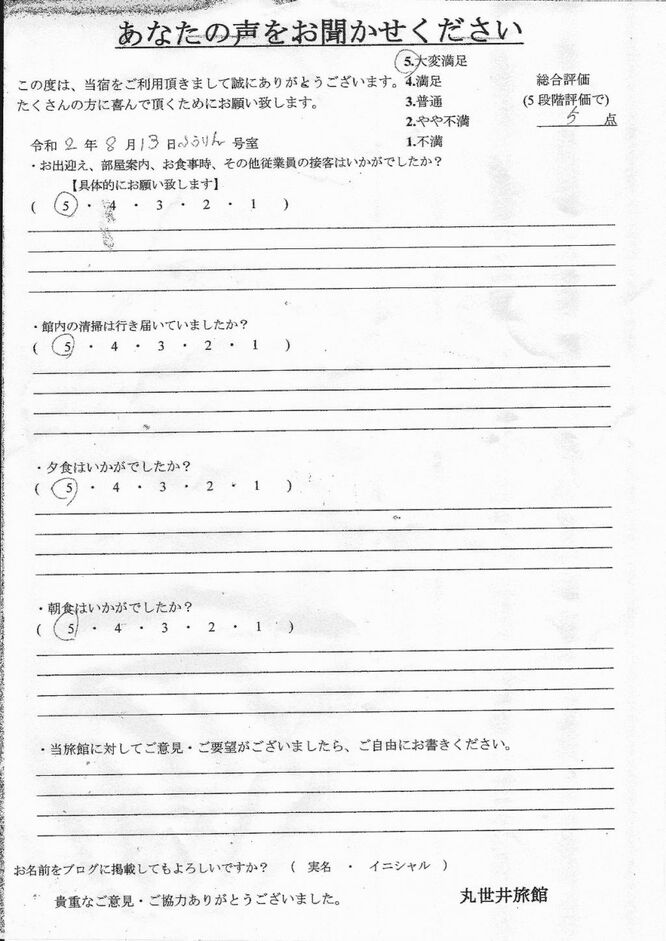 あなたの声をお聞かせください
この度は、当宿をご利用頂きまして誠にありがとうございます。
たくさんの方に喜んで頂くためにお願い致します。
5.大変満足
4.満足
3.普通
2.やや不満
1.不満
総合評価
(5段階評価で)
5 点
令和 2 年 8 月 13 日 号室
・お出迎え、部屋案内、お食事時、その他従業員の接客はいかがでしたか？
【具体的にお願い致します】
( 5 ・ 4 ・ 3 ・ 2 ・ 1 )
・館内の清掃は行き届いていましたか？
( 5 ・ 4 ・ 3 ・ 2 ・ 1 )
・夕食はいかがでしたか？
( 5 ・ 4 ・ 3 ・ 2 ・ 1 )
・朝食はいかがでしたか？
( 5 ・ 4 ・ 3 ・ 2 ・ 1 )
・当旅館に対してご意見・ご要望がございましたら、ご自由にお書きください。
お名前をブログに掲載してもよろしいですか？ ( 実名 ・ イニシャル )
貴重なご意見・ご協力ありがとうございました。
丸世井旅館